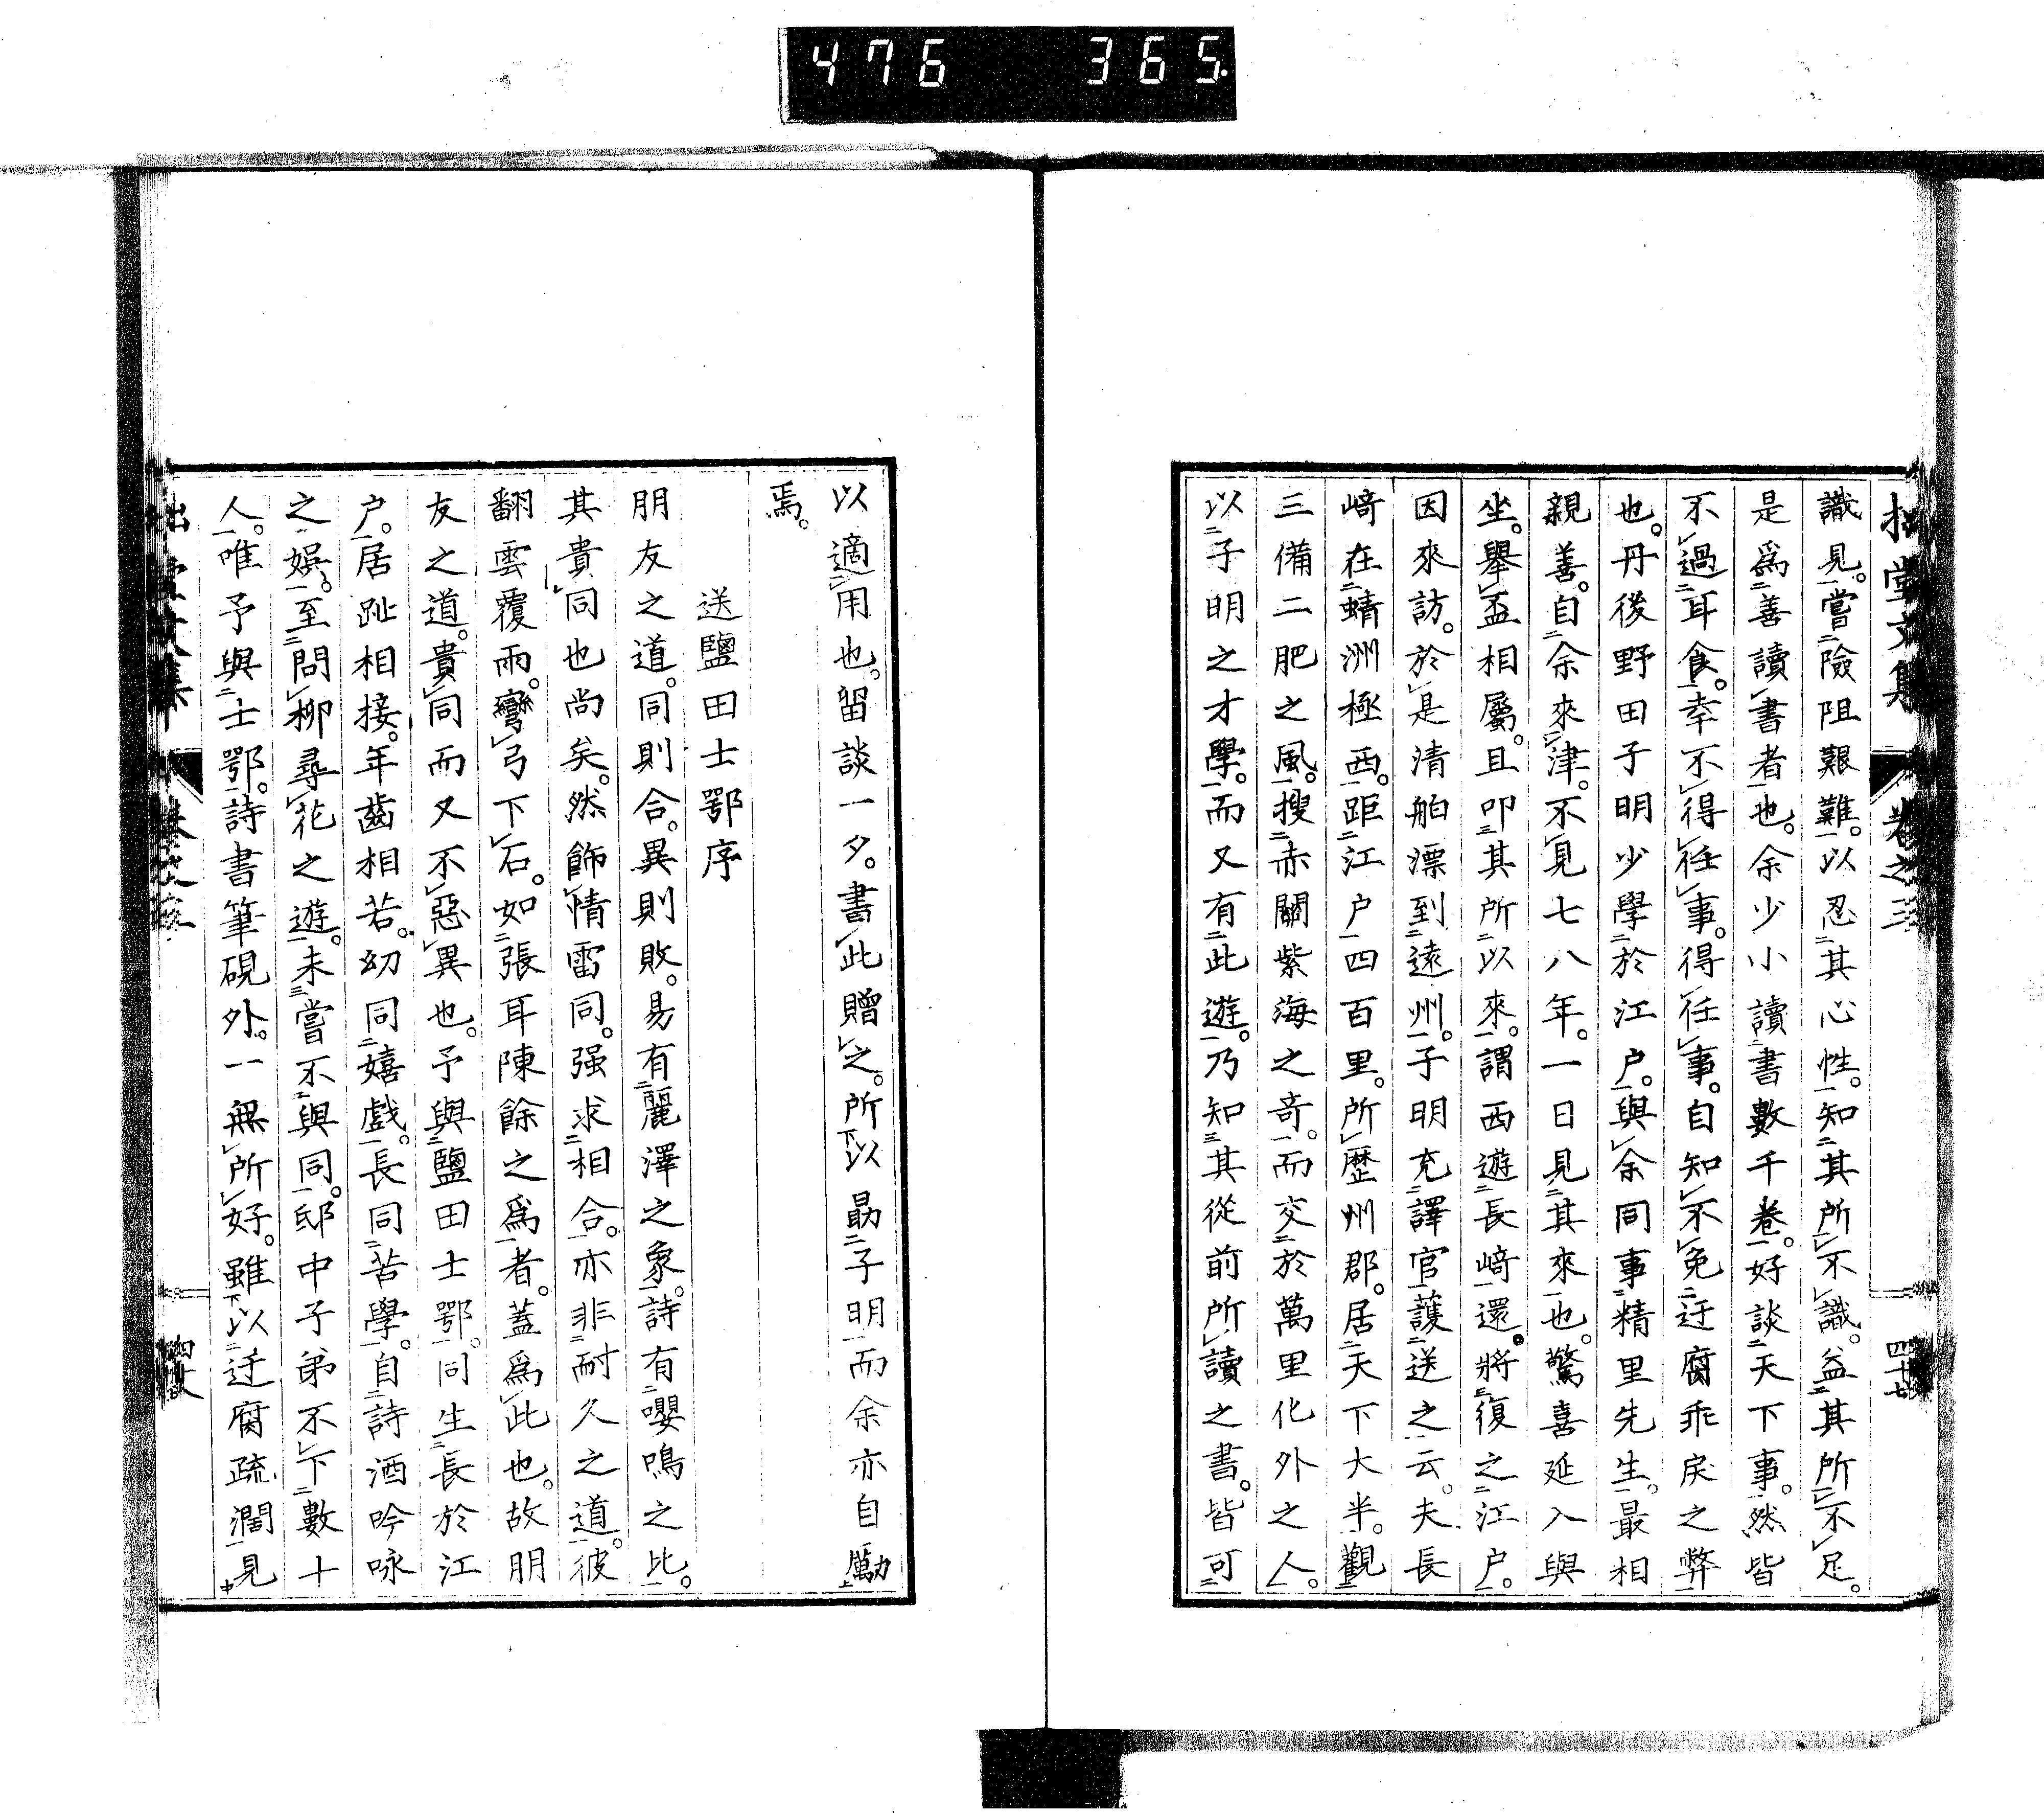 476 365
拙堂文集 卷之三 四十七
識見。嘗險阻艱難。以忍其心性。知其所不識。益其所不足。
是爲善讀書者也。余少小讀書數千卷。好談天下事。然皆
不過耳食。幸不得任事。得任事。自知不免迂腐乖戾之弊
也。丹後野田子明少學於江戶。與余同事精里先生。最相
親善。自余來津。不見七八年。一日見其來也。驚喜延入與
坐。舉盃相屬。且叩其所以來。謂西遊長﨑還。將復之江戶。
因來訪。於是清舶漂到遠州。子明充譯官護送之云。夫長
﨑在蜻洲極西。距江戶四百里。所歷州郡。居天下大半。觀
三備二肥之風。搜赤關紫海之奇。而交於萬里化外之人。
以子明之才學。而又有此遊。乃知其從前所讀之書。皆可
以適用也。留談一夕。書此贈之。所以勗子明而余亦自勵
焉。
送鹽田士鄂序
朋友之道。同則合。異則敗。易有麗澤之象。詩有嚶鳴之比。
其貴同也尚矣。然飾情雷同。强求相合。亦非耐久之道。彼
翻雲覆雨。彎弓下石。如張耳陳餘之爲者。蓋爲此也。故朋
友之道。貴同而又不惡異也。予與鹽田士鄂。同生長於江
戶。居趾相接。年齒相若。幼同嬉戲。長同苦學。自詩酒吟咏
之娛。至問柳尋花之遊。未嘗不與同。邸中子弟不下數十
人。唯予與士鄂。詩書筆硯外。一無所好。雖以迂腐疏濶見